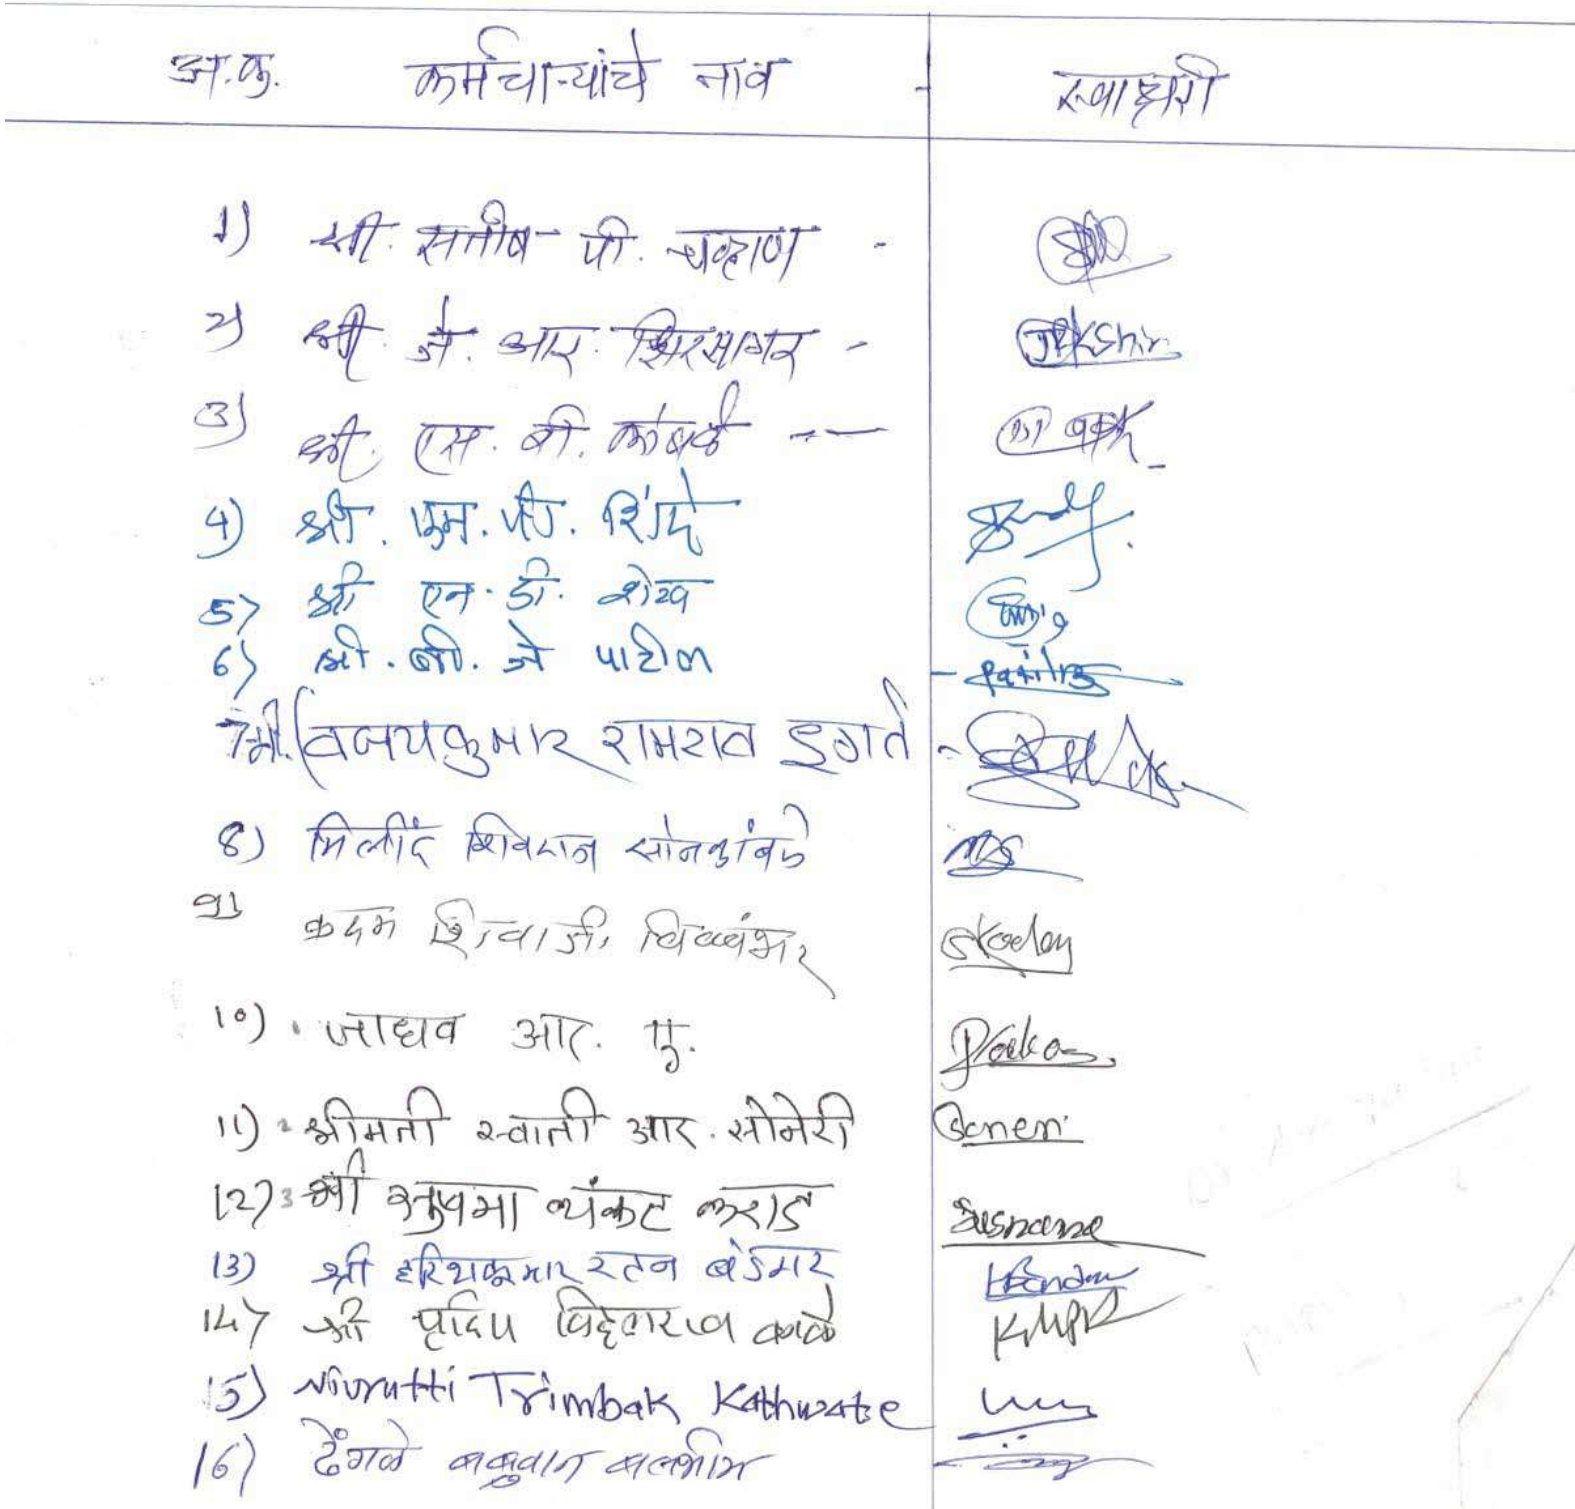 अ.क्र. कर्मचाऱ्यांचे नाव - स्वाक्षरी
1) श्री. सतीष पी. चव्हाण -
2) श्री. जे. आर. क्षिरसागर - JRKshir
3) श्री. एस. बी. कांबळे --
4) श्री. एम. पी. शिंदे
5) श्री एन. डी. शेख
6) श्री. बी. जे पाटील - patil
7) श्री. विजयकुमार रामराव इगते -
8) मिलींद शिवराज सोनकांबळे
9) कदम शिवाजी विश्वंभर Skadam
10) जाधव आर. ए.
11) श्रीमती स्वाती आर. सोनेरी Soneri
12) श्री सुषमा व्यंकट कराड
13) श्री हरिषकुमार रतन बेंडगर
14) श्री प्रदिप विठ्ठलराव काळे
15) Nivrutti Trimbak Kathwate
16) ढेंगळे बब्रुवान बलभीम